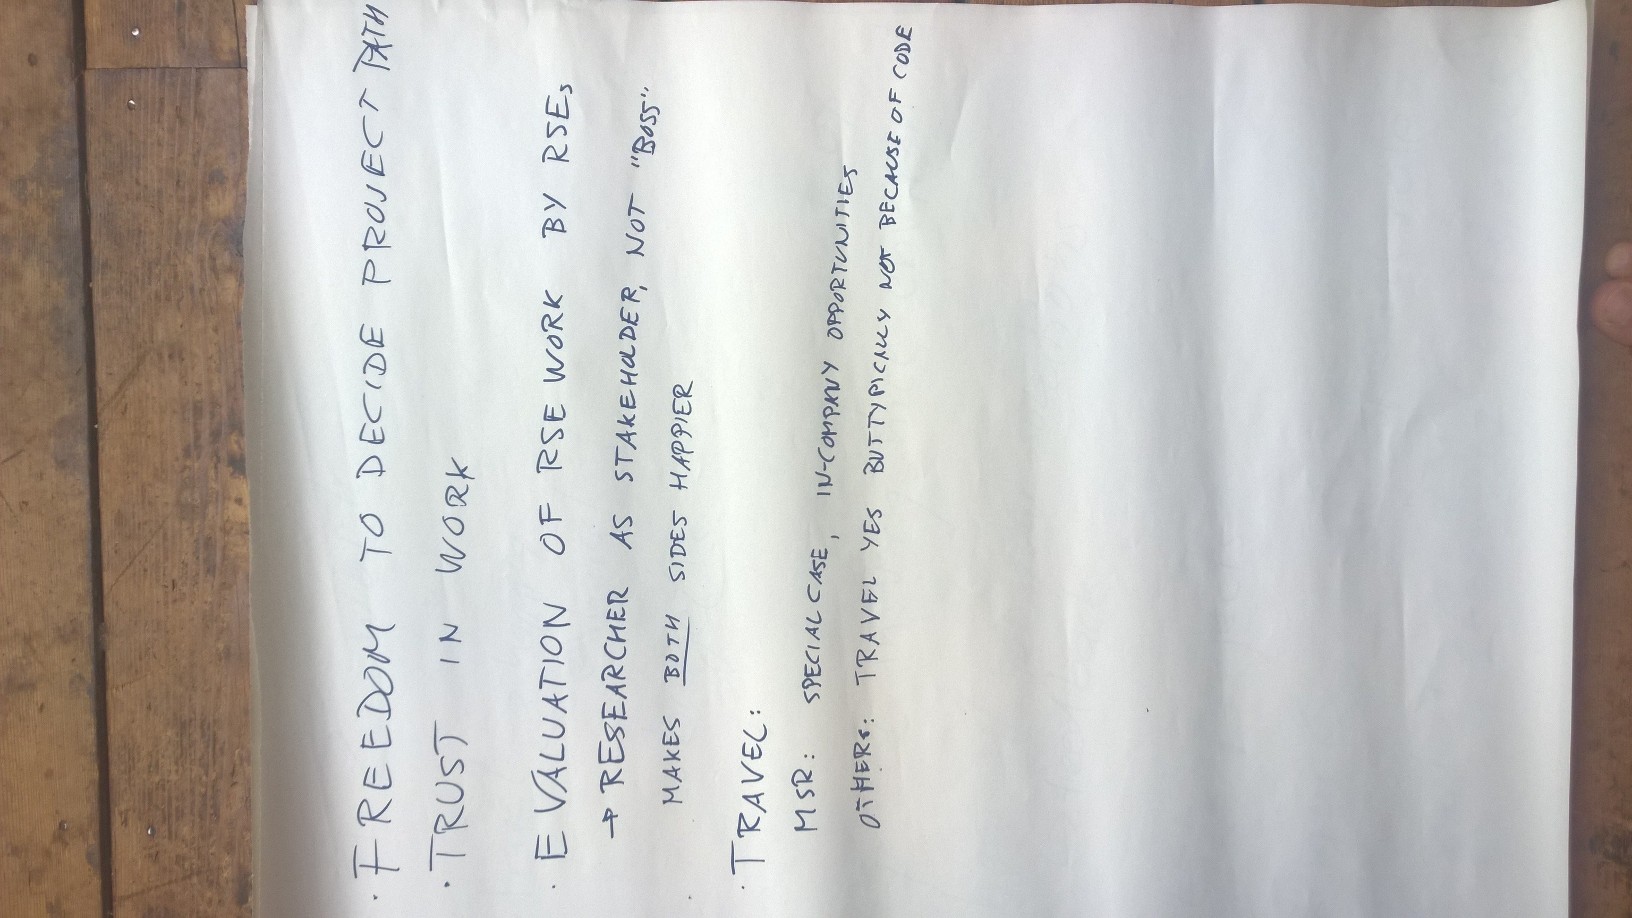 · FREEDOM TO DECIDE PROJECT PATH
· TRUST IN WORK
· EVALUATION OF RSE WORK BY RSEs
→ RESEARCHER AS STAKEHOLDER, NOT "BOSS"
MAKES BOTH SIDES HAPPIER
· TRAVEL:
MSR: SPECIAL CASE, IN-COMPANY OPPORTUNITIES
OTHERS: TRAVEL YES BUT TYPICALLY NOT BECAUSE OF CODE